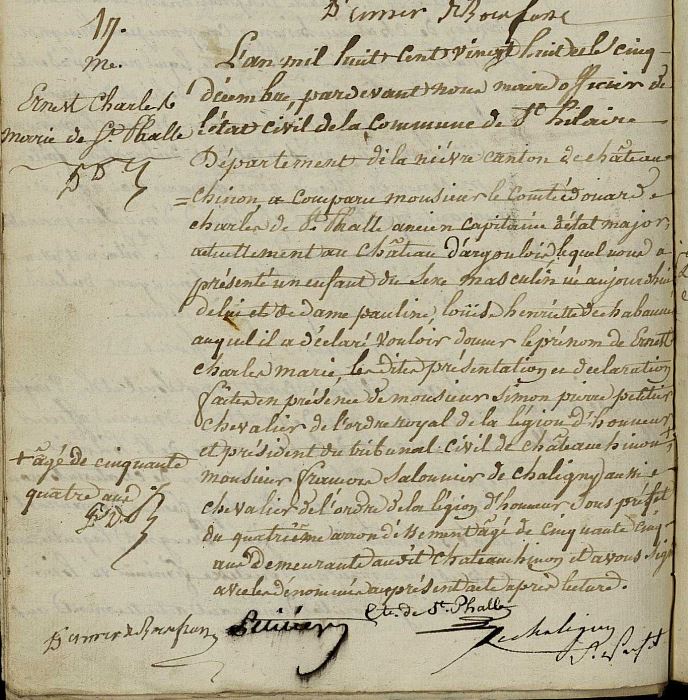 17.
me.
Ernest Charles
marie de St. Phalle
L'an mil huit cent vingt huit le cinq
décembre, pardevant nous maire officier de
l'état civil de la commune de St. hilaire
Département de la niévre canton de château
=chinon, a comparu monsieur le comte édouard
charles de St. Phalle ancien capitaine d'état major,
actuellement au château d'argoulois lequel nous a
présenté un enfant du sexe masculin né aujourd'hui
de lui et de dame pauline, louise henriette de chabannes
auquel il a déclaré vouloir donner le prénom de Ernest
charles marie, les dites présentation et declaration
faites en présence de monsieur simon pierre petitier
chevalier de l'ordre royal de la légion d'honneur
et président du tribunal civil de château chinon +
+ âgé de cinquante
quatre ans
monsieur françois salonnier de chaligny aussi
chevalier de l'ordre de la légion d'honneur sous préfet
du quatrième arrondissement âgé de cinquante cinq
ans demeurant audit château chinon et avons signé
avec les dénommés au présent acte après lecture.
Cte. de St. Phalle
de chaligny